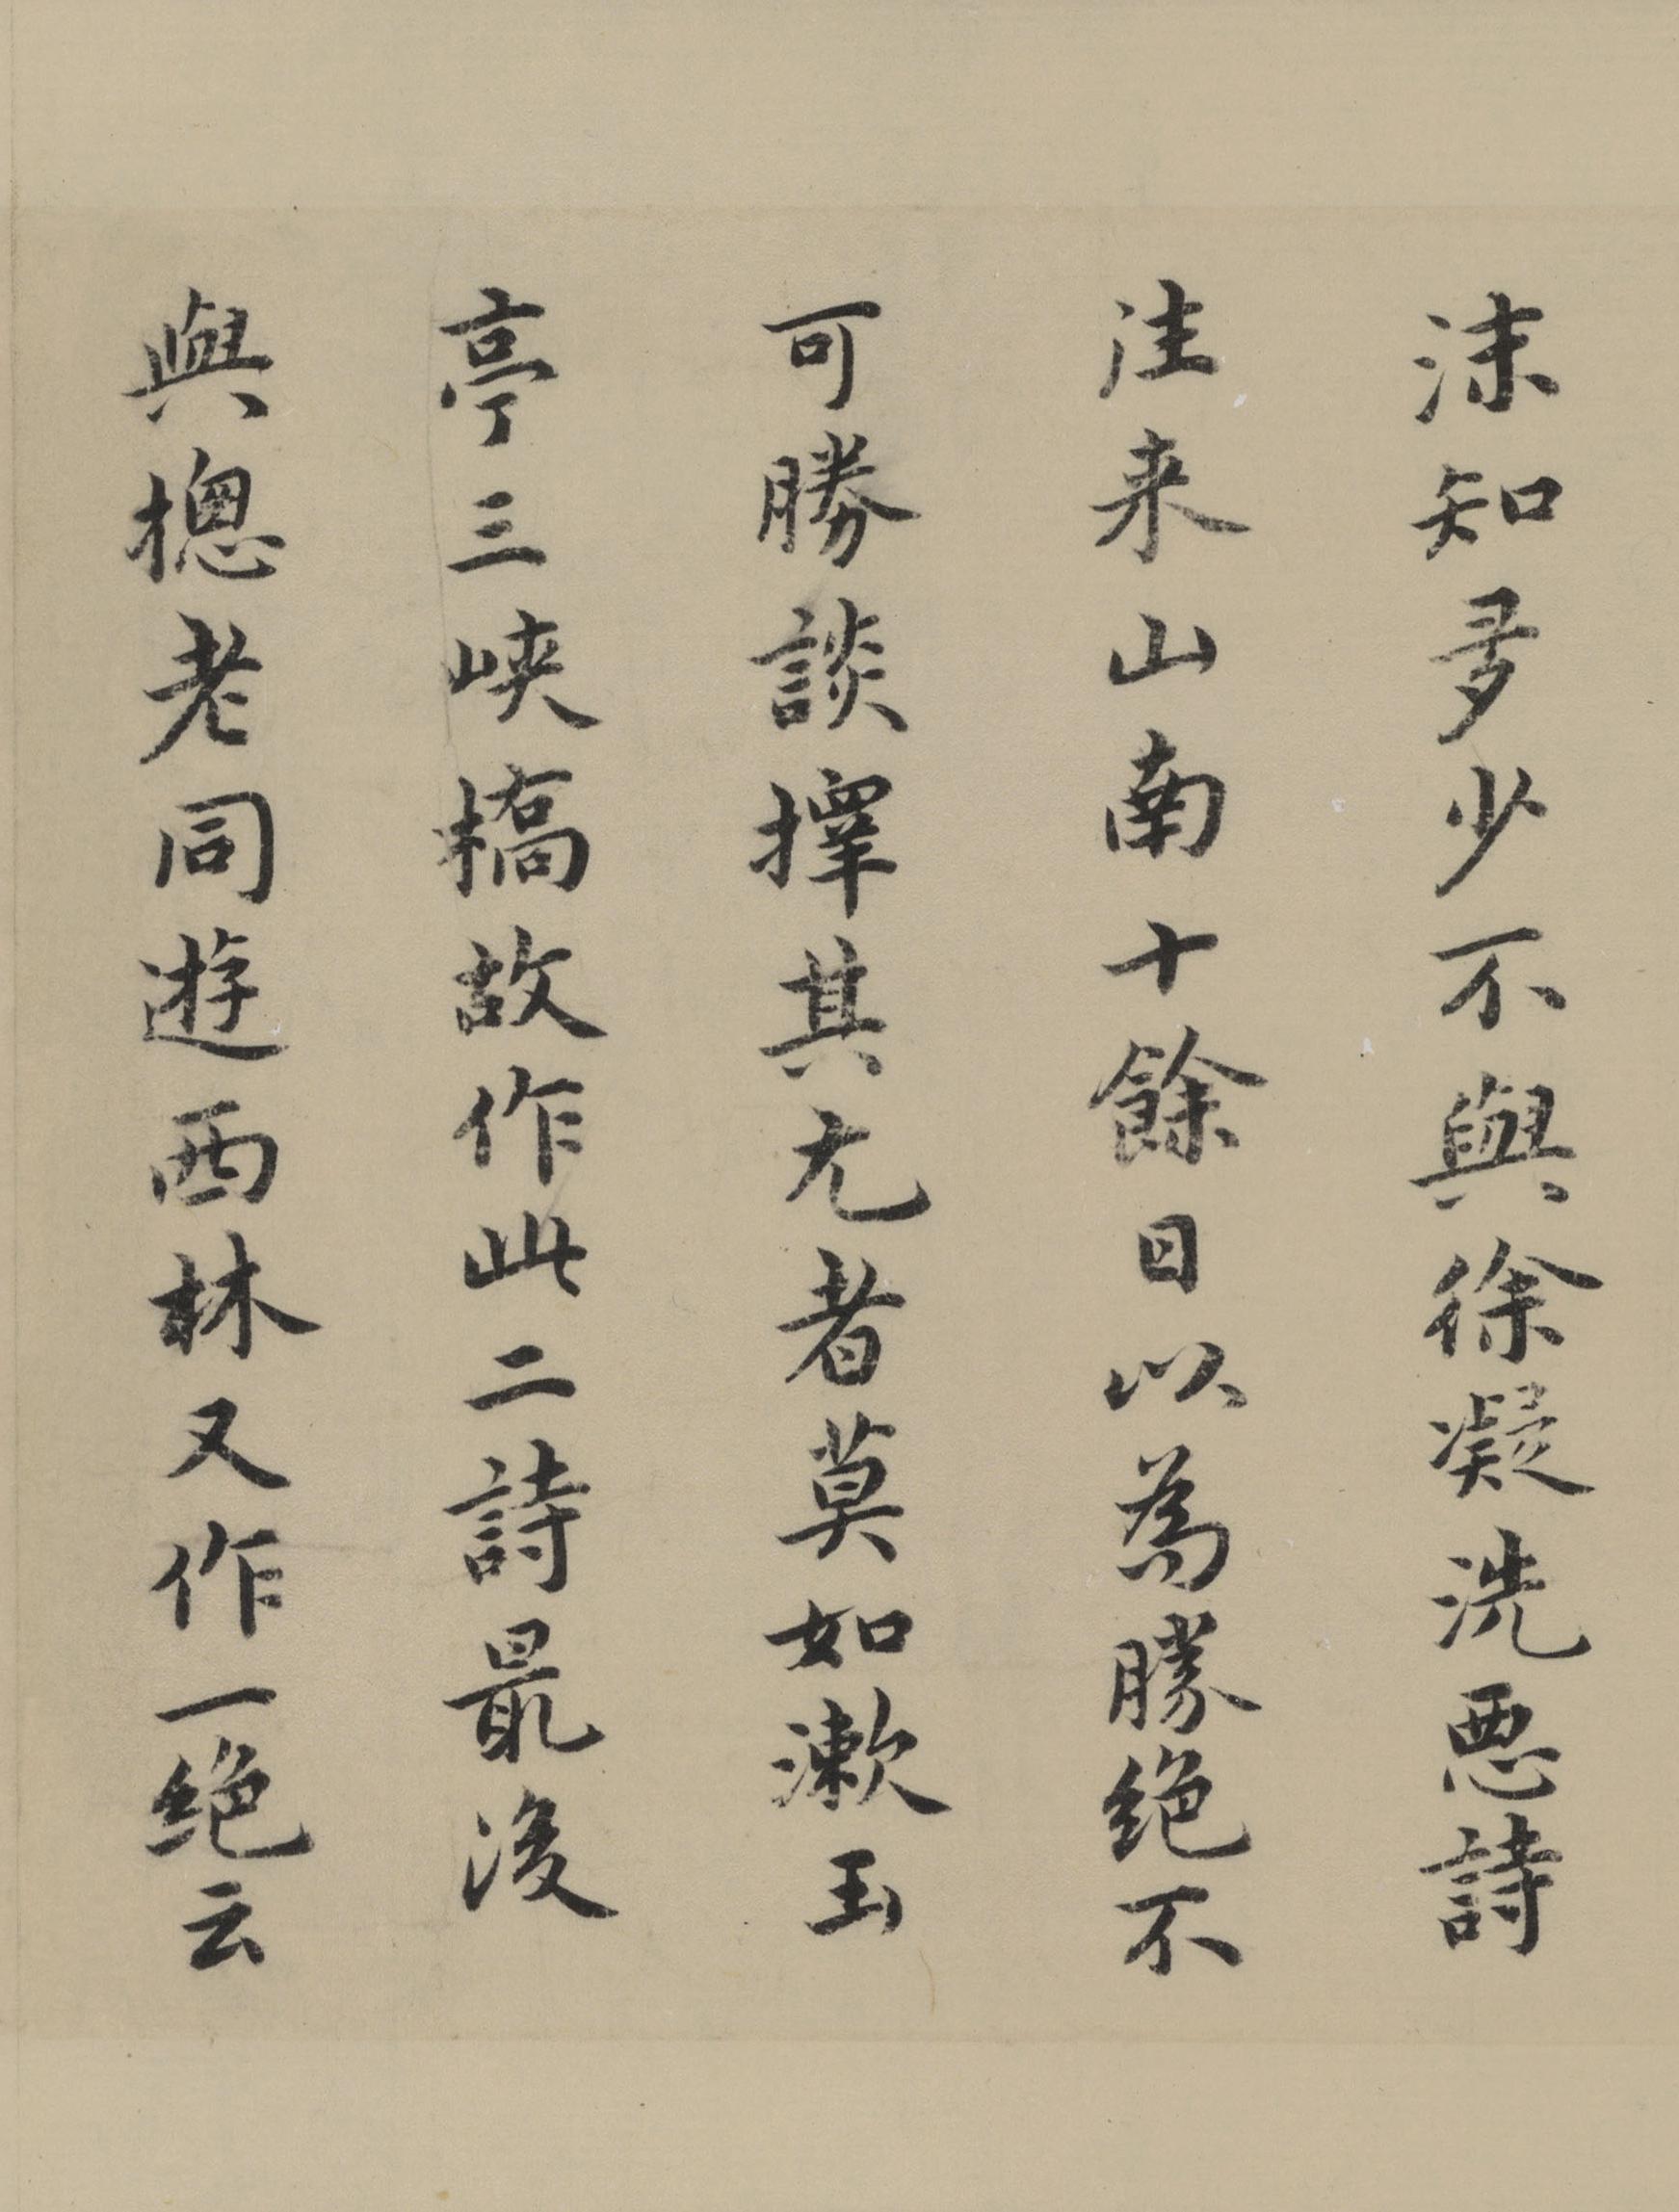 沫知多少不與徐凝洗惡詩
往来山南十餘日以為勝絕不
可勝談擇其尤者莫如漱玉
亭三峽橋故作此二詩最後
與揔老同遊西林又作一絕云